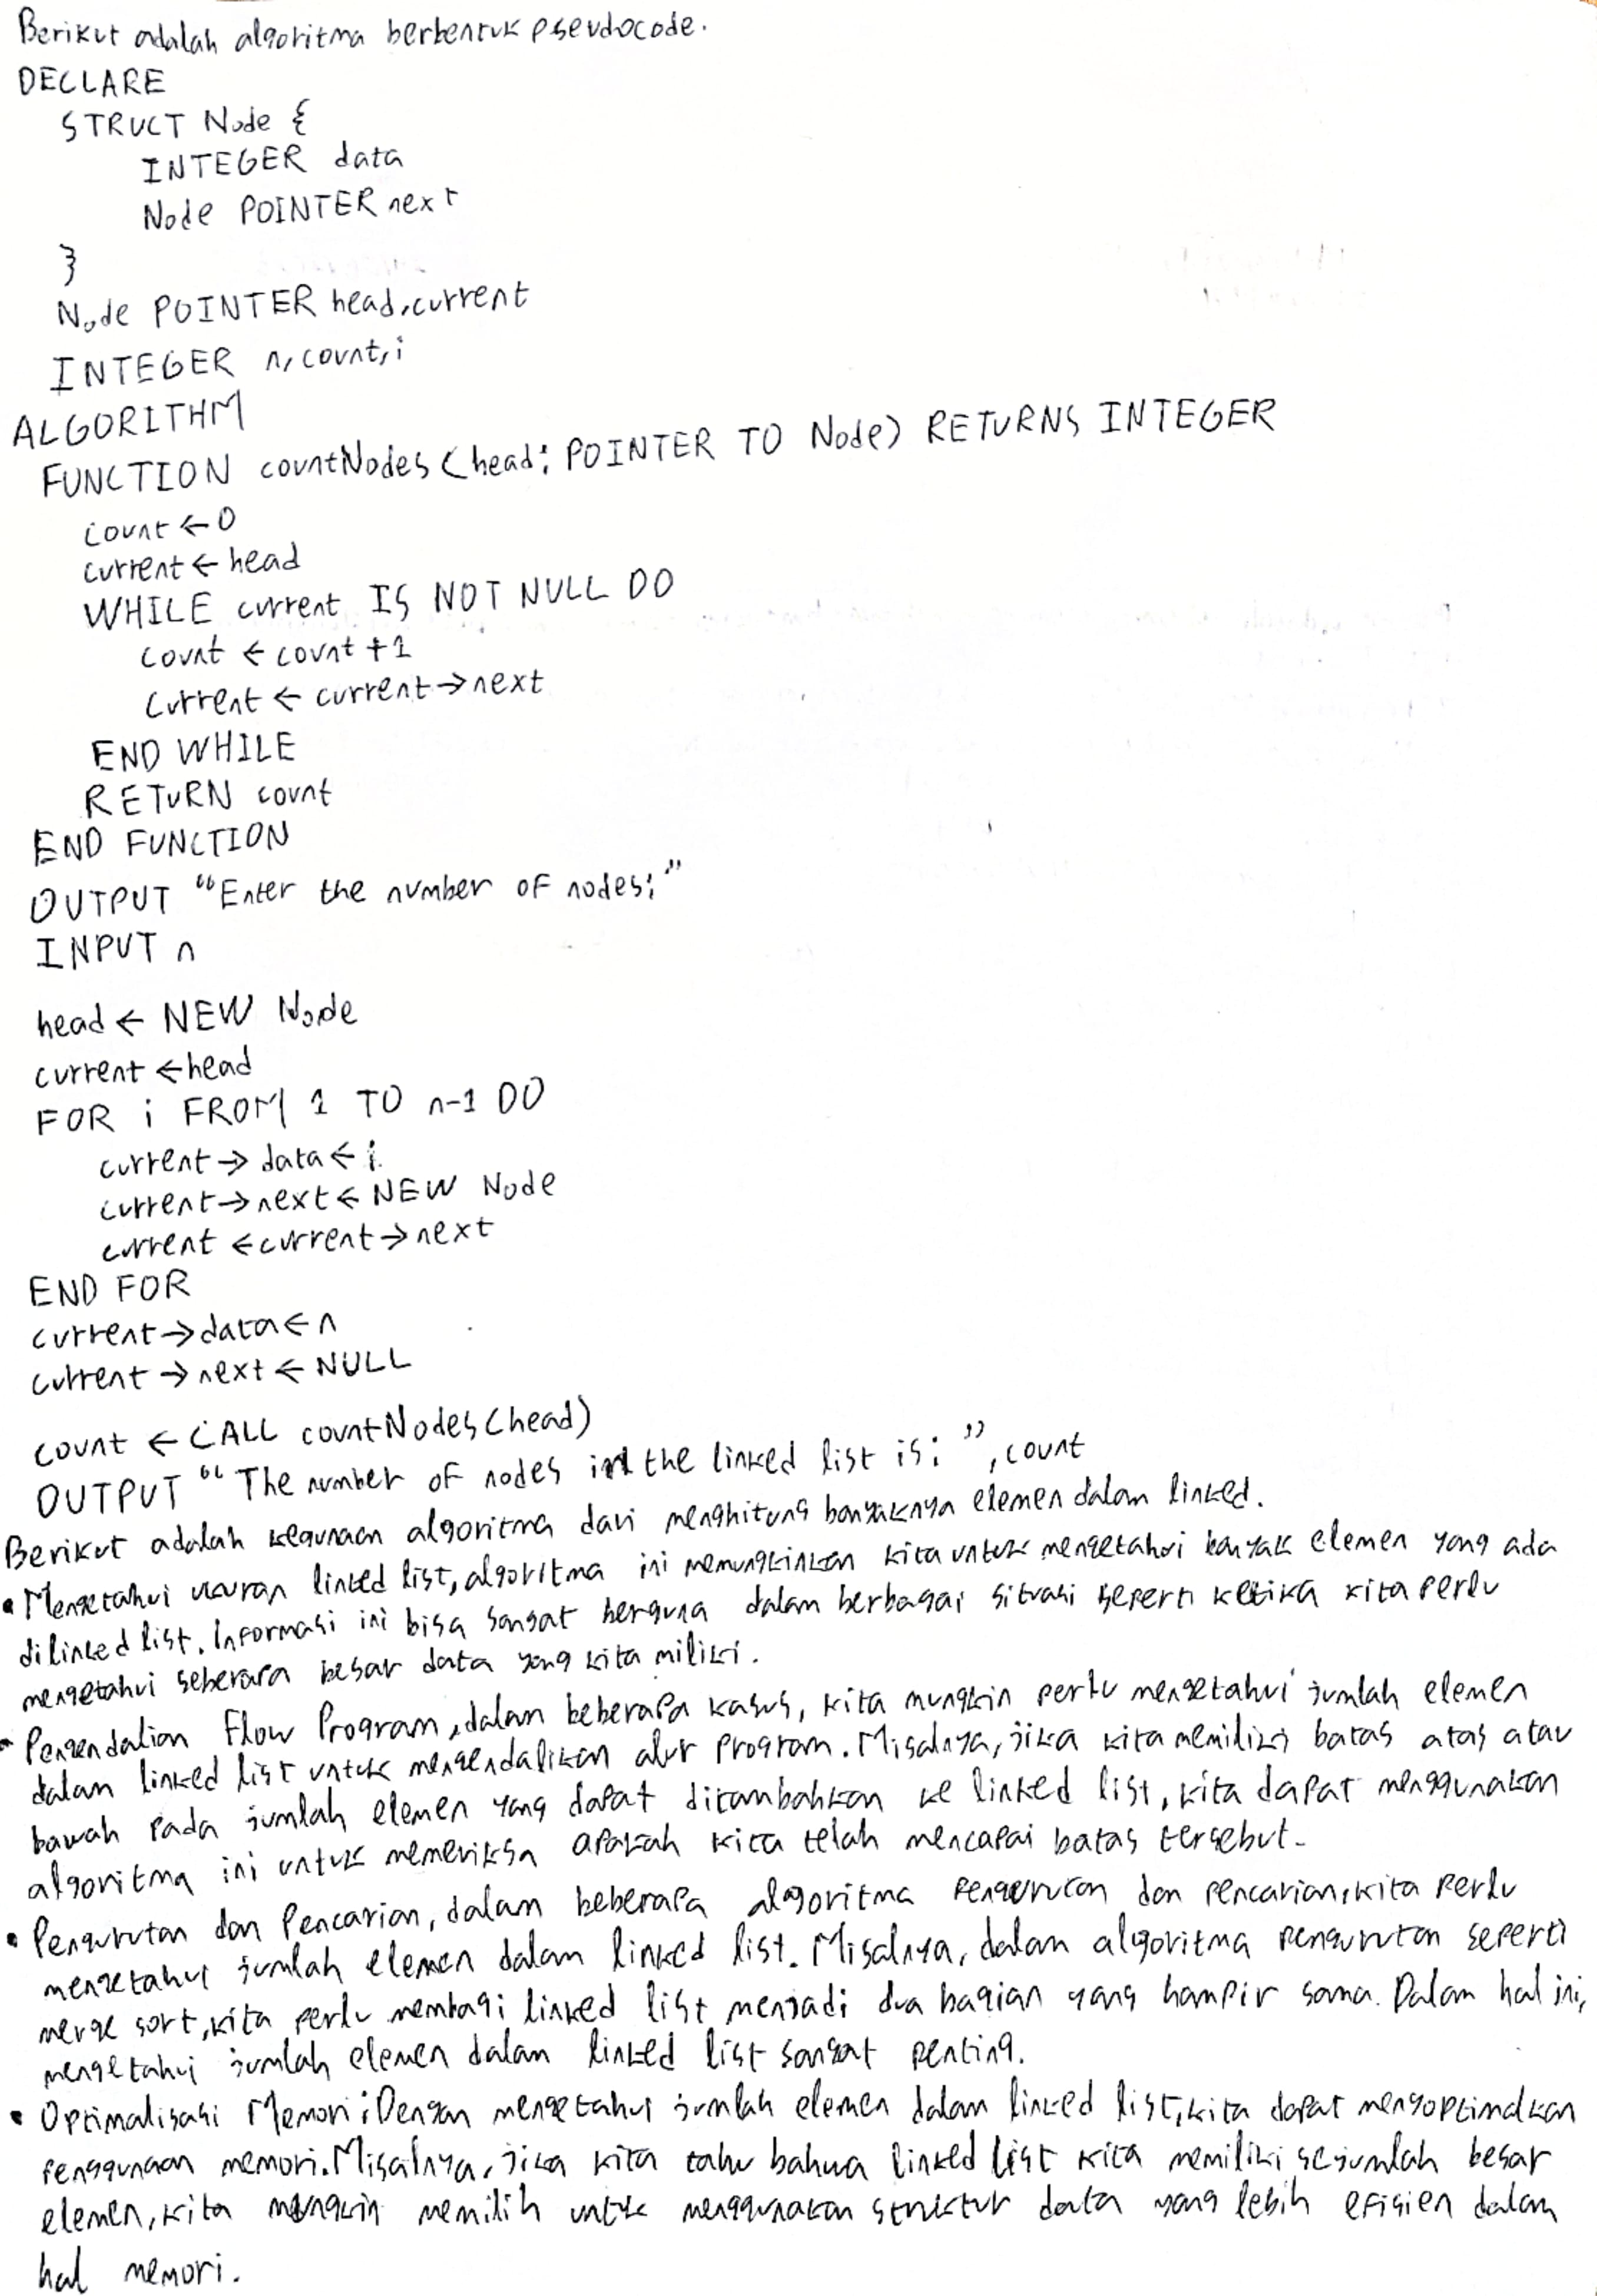 Berikut adalah algoritma berbentuk pseudocode.
DECLARE
STRUCT Node {
INTEGER data
Node POINTER next
}
Node POINTER head, current
INTEGER n, count, i
ALGORITHM
FUNCTION countNodes (head: POINTER TO Node) RETURNS INTEGER
count ← 0
current ← head
WHILE current IS NOT NULL DO
count ← count + 1
current ← current → next
END WHILE
RETURN count
END FUNCTION
OUTPUT "Enter the number of nodes:"
INPUT n
head ← NEW Node
current ← head
FOR i FROM 1 TO n-1 DO
current → data ← i
current → next ← NEW Node
current ← current → next
END FOR
current → data ← n
current → next ← NULL
count ← CALL countNodes (head)
OUTPUT "The number of nodes in the linked list is: ", count
Berikut adalah kegunaan algoritma dari menghitung banyaknya elemen dalam linked.
• Mengetahui ukuran linked list, algoritma ini memungkinkan kita untuk mengetahui banyak elemen yang ada
di linked list. Informasi ini bisa sangat berguna dalam berbagai situasi seperti ketika kita perlu
mengetahui seberapa besar data yang kita miliki.
• Pengendalian Flow Program, dalam beberapa kasus, kita mungkin perlu mengetahui jumlah elemen
dalam linked list untuk mengendalikan alur program. Misalnya, jika kita memiliki batas atas atau
bawah pada jumlah elemen yang dapat ditambahkan ke linked list, kita dapat menggunakan
algoritma ini untuk memeriksa apakah kita telah mencapai batas tersebut.
• Pengurutan dan Pencarian, dalam beberapa algoritma pengurutan dan pencarian, kita perlu
mengetahui jumlah elemen dalam linked list. Misalnya, dalam algoritma pengurutan seperti
merge sort, kita perlu membagi linked list menjadi dua bagian yang hampir sama. Dalam hal ini,
mengetahui jumlah elemen dalam linked list sangat penting.
• Optimalisasi Memori: Dengan mengetahui jumlah elemen dalam linked list, kita dapat mengoptimalkan
penggunaan memori. Misalnya, jika kita tahu bahwa linked list kita memiliki sejumlah besar
elemen, kita mungkin memilih untuk menggunakan struktur data yang lebih efisien dalam
hal memori.